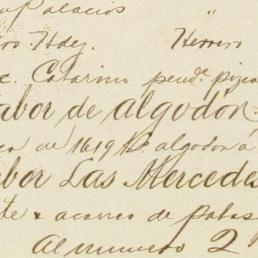 Palacios "
Hdez. Herrero
Catarino pend.e pizca
labor de algodon.
de 1619 Ks algodon á
Labor Las Mercedes
te & acarreo de patas
Al numero 2